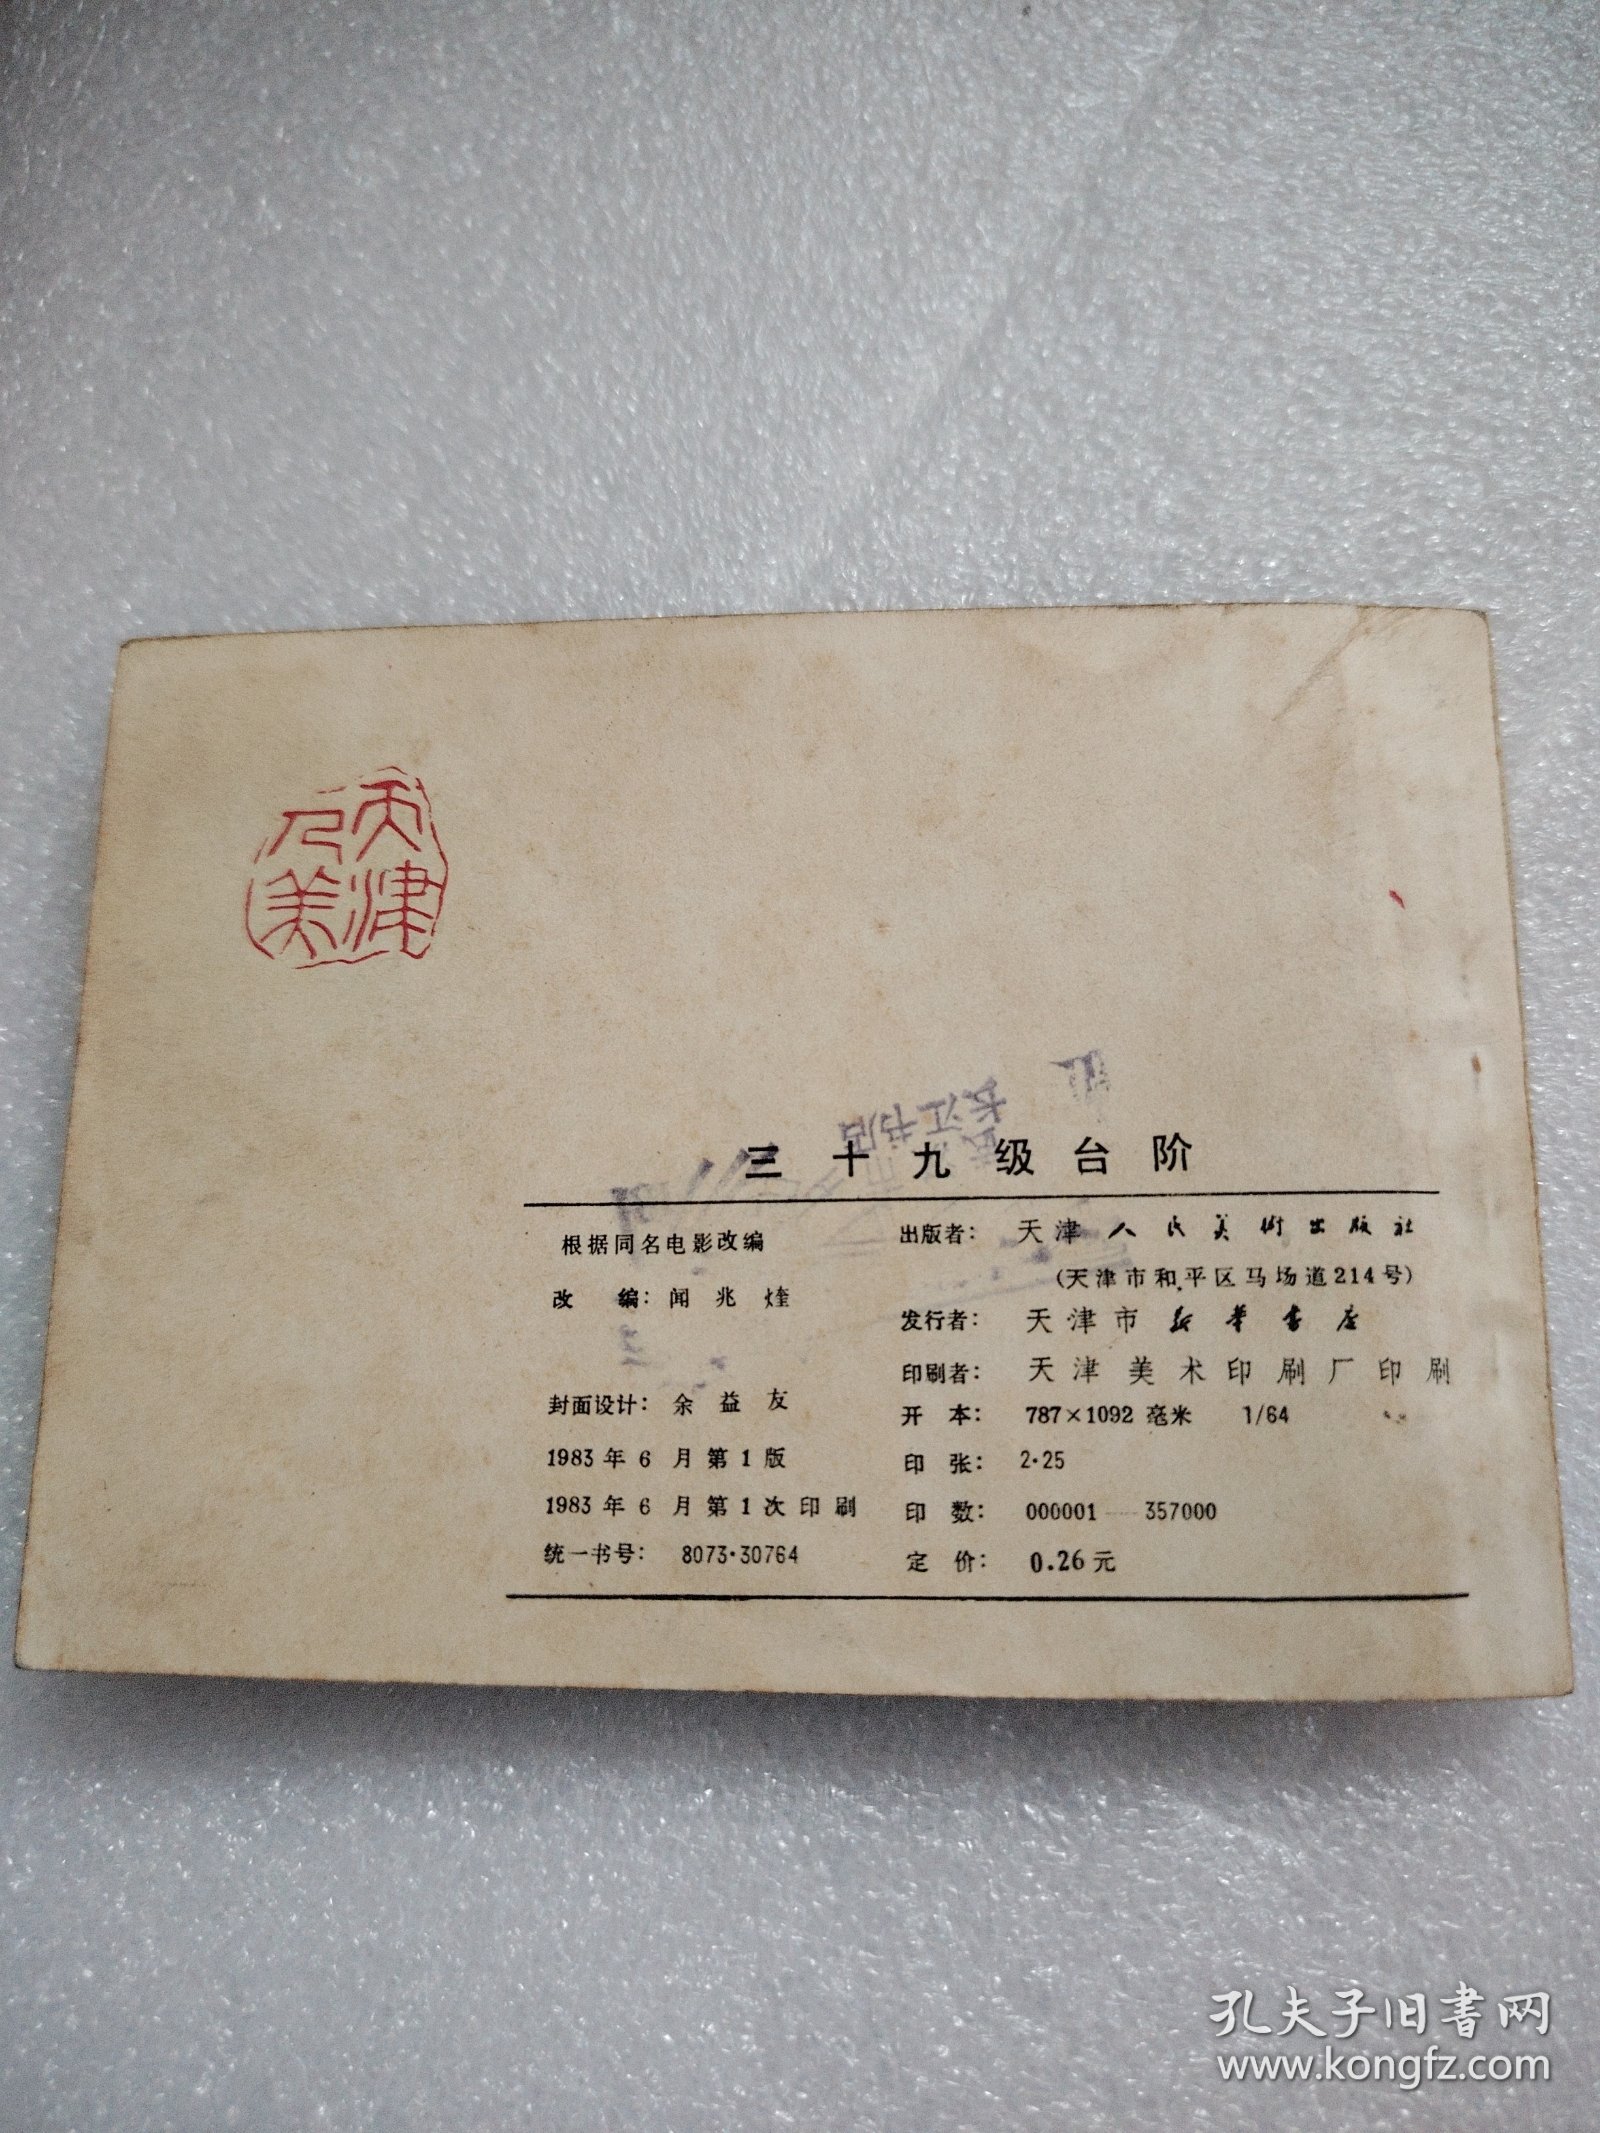 天津
人美
长江书店
三十九级台阶
根据同名电影改编
改 编：闻兆煃
封面设计：余益友
1983年6月第1版
1983年6月第1次印刷
统一书号：8073·30764
出版者：天津人民美术出版社
(天津市和平区马场道214号)
发行者：天津市新华书店
印刷者：天津美术印刷厂印刷
开 本：787×1092毫米 1/64
印 张：2·25
印 数：000001—357000
定 价：0.26元
孔夫子旧書网
www.kongfz.com